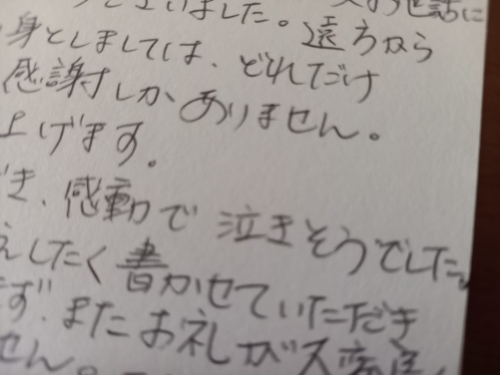 ございました。
身としましては、遠方から
感謝しかありません。どれだけ
上げます。
き、感動で泣きそうでした。
えしたく書かせていただき
ず、またお礼が大変遅
せん。